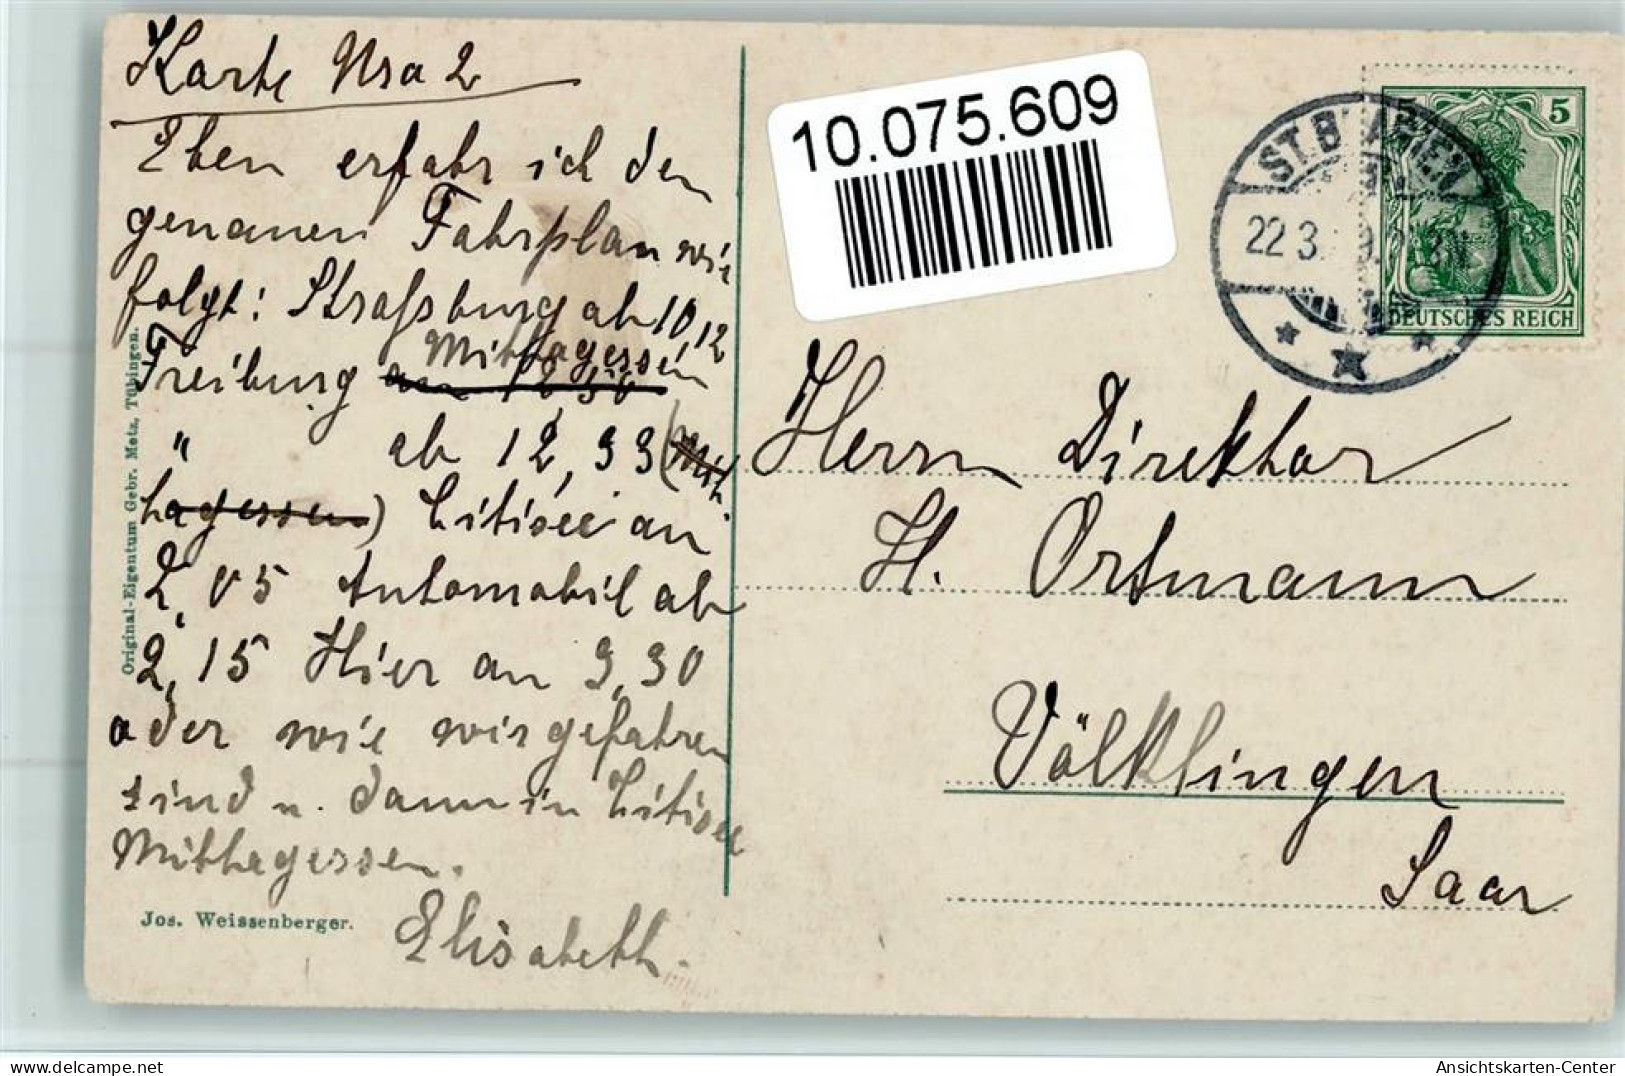 Karte Nro 2
Eben erfahr ich den
genauen Fahrplan wie
folgt: Strassburg ab 10,12
Mittagessen
Freiburg an 12 30
" ab 12,33 (Mit-
tagessen) Titisee an
2,05 Automobil ab
2,15 Hier an 3,30
oder wie wir gefahren
sind u. dann in Titisee
Mittagessen.
Elisabeth.
Jos. Weissenberger.
Original-Eigentum Gebr. Metz, Tübingen.
10.075.609
ST. BLASIEN
22 3.
5
DEUTSCHES REICH
Herrn Direktor
H. Ortmann
Völklingen
Saar
Ansichtskarten-Center